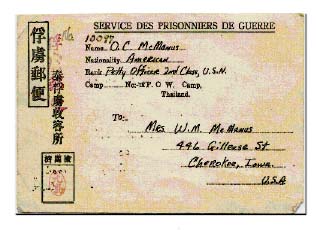 SERVICE DES PRISONNIERS DE GUERRE
俘虜郵便
泰俘虜收容所
Name O.C. McManus
Nationality American
Rank Petty Officer 2nd Class, U.S.N.
Camp No. P. O. W. Camp,
Thailand.
To:
Mrs W.M. McManus
446 Gilleese St
Cherokee, Iowa.
U.S.A